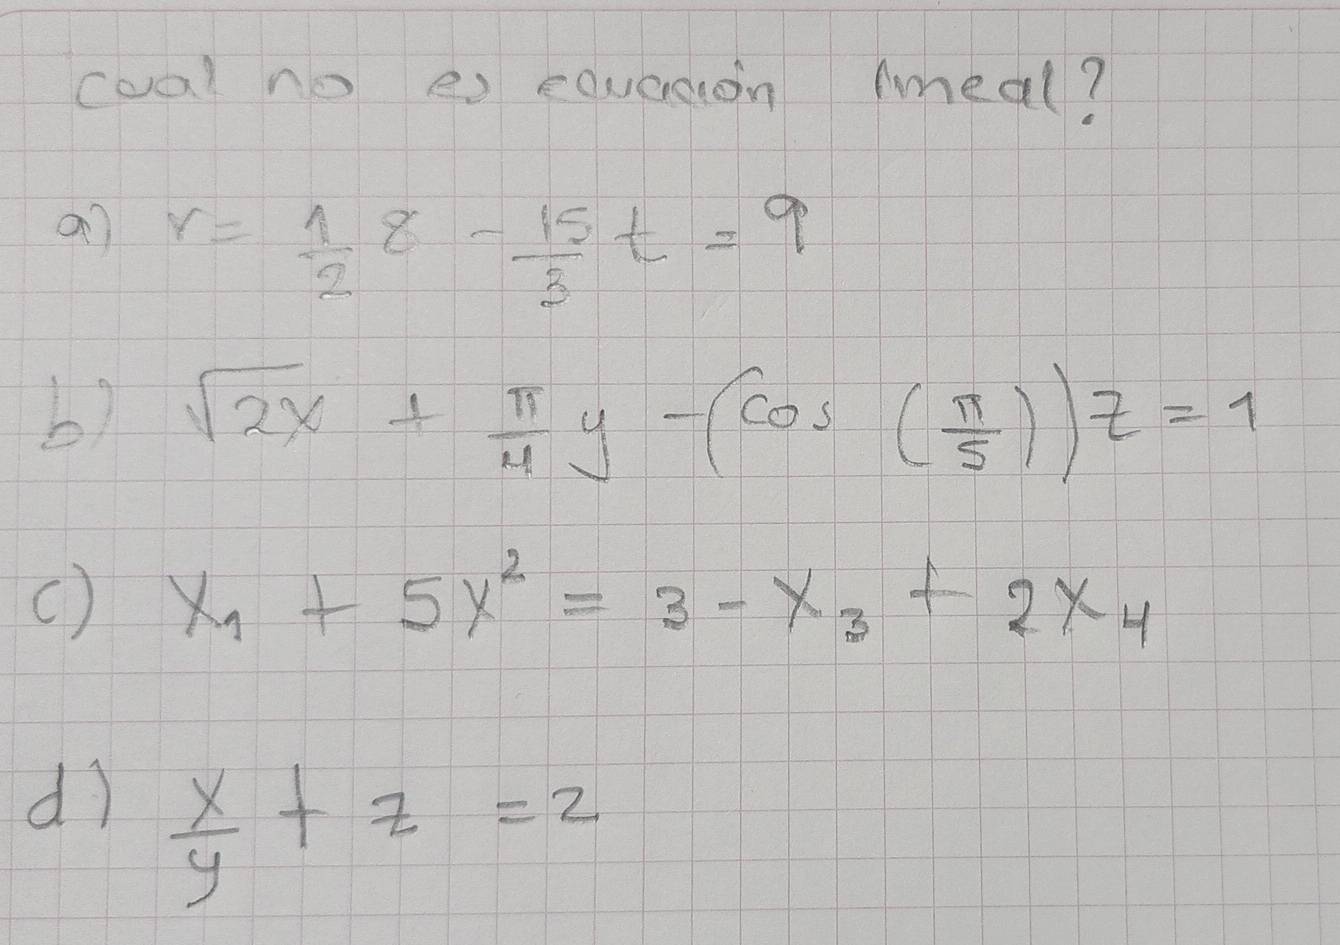 cual no es ecuación lineal?
a) r = 1/2 8 - 15/3 t = 9
b) √2x + π/4 y - (cos (π/5)) z = 1
c) x₁ + 5x² = 3 - x₃ + 2x₄
d) x/y + z = 2